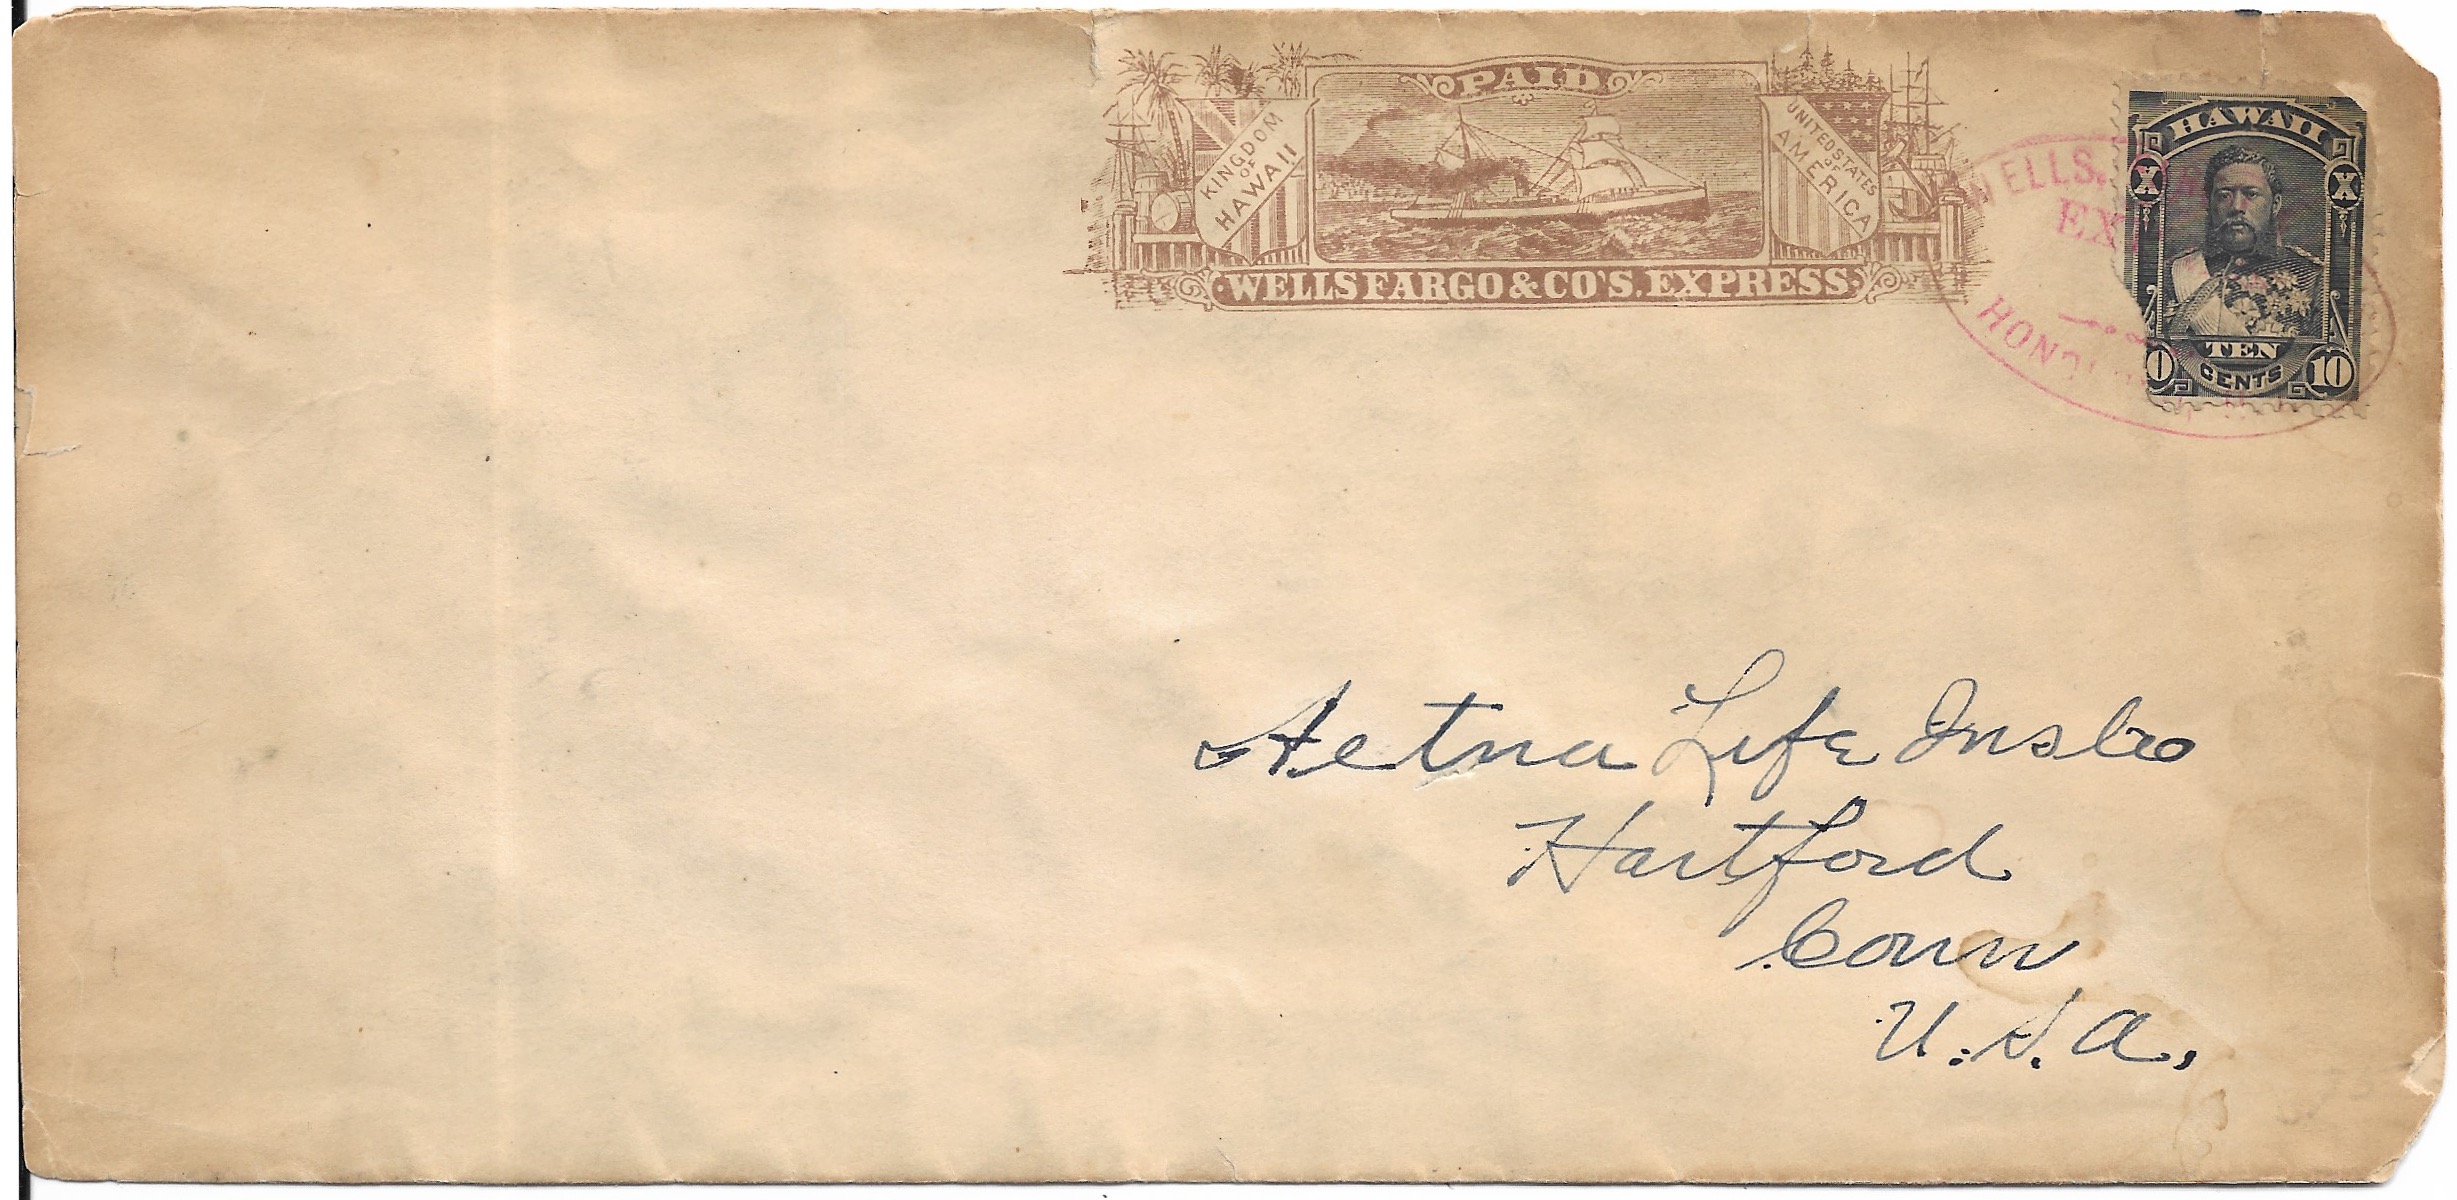 PAID
KINGDOM
OF
HAWAII
UNITED STATES
OF
AMERICA
WELLS FARGO & CO'S. EXPRESS.
WELLS.
EX
HONOL
HAWAII
X X
TEN
10 CENTS 10
Aetna Life Ins Co
Hartford
Conn
U.S.A.